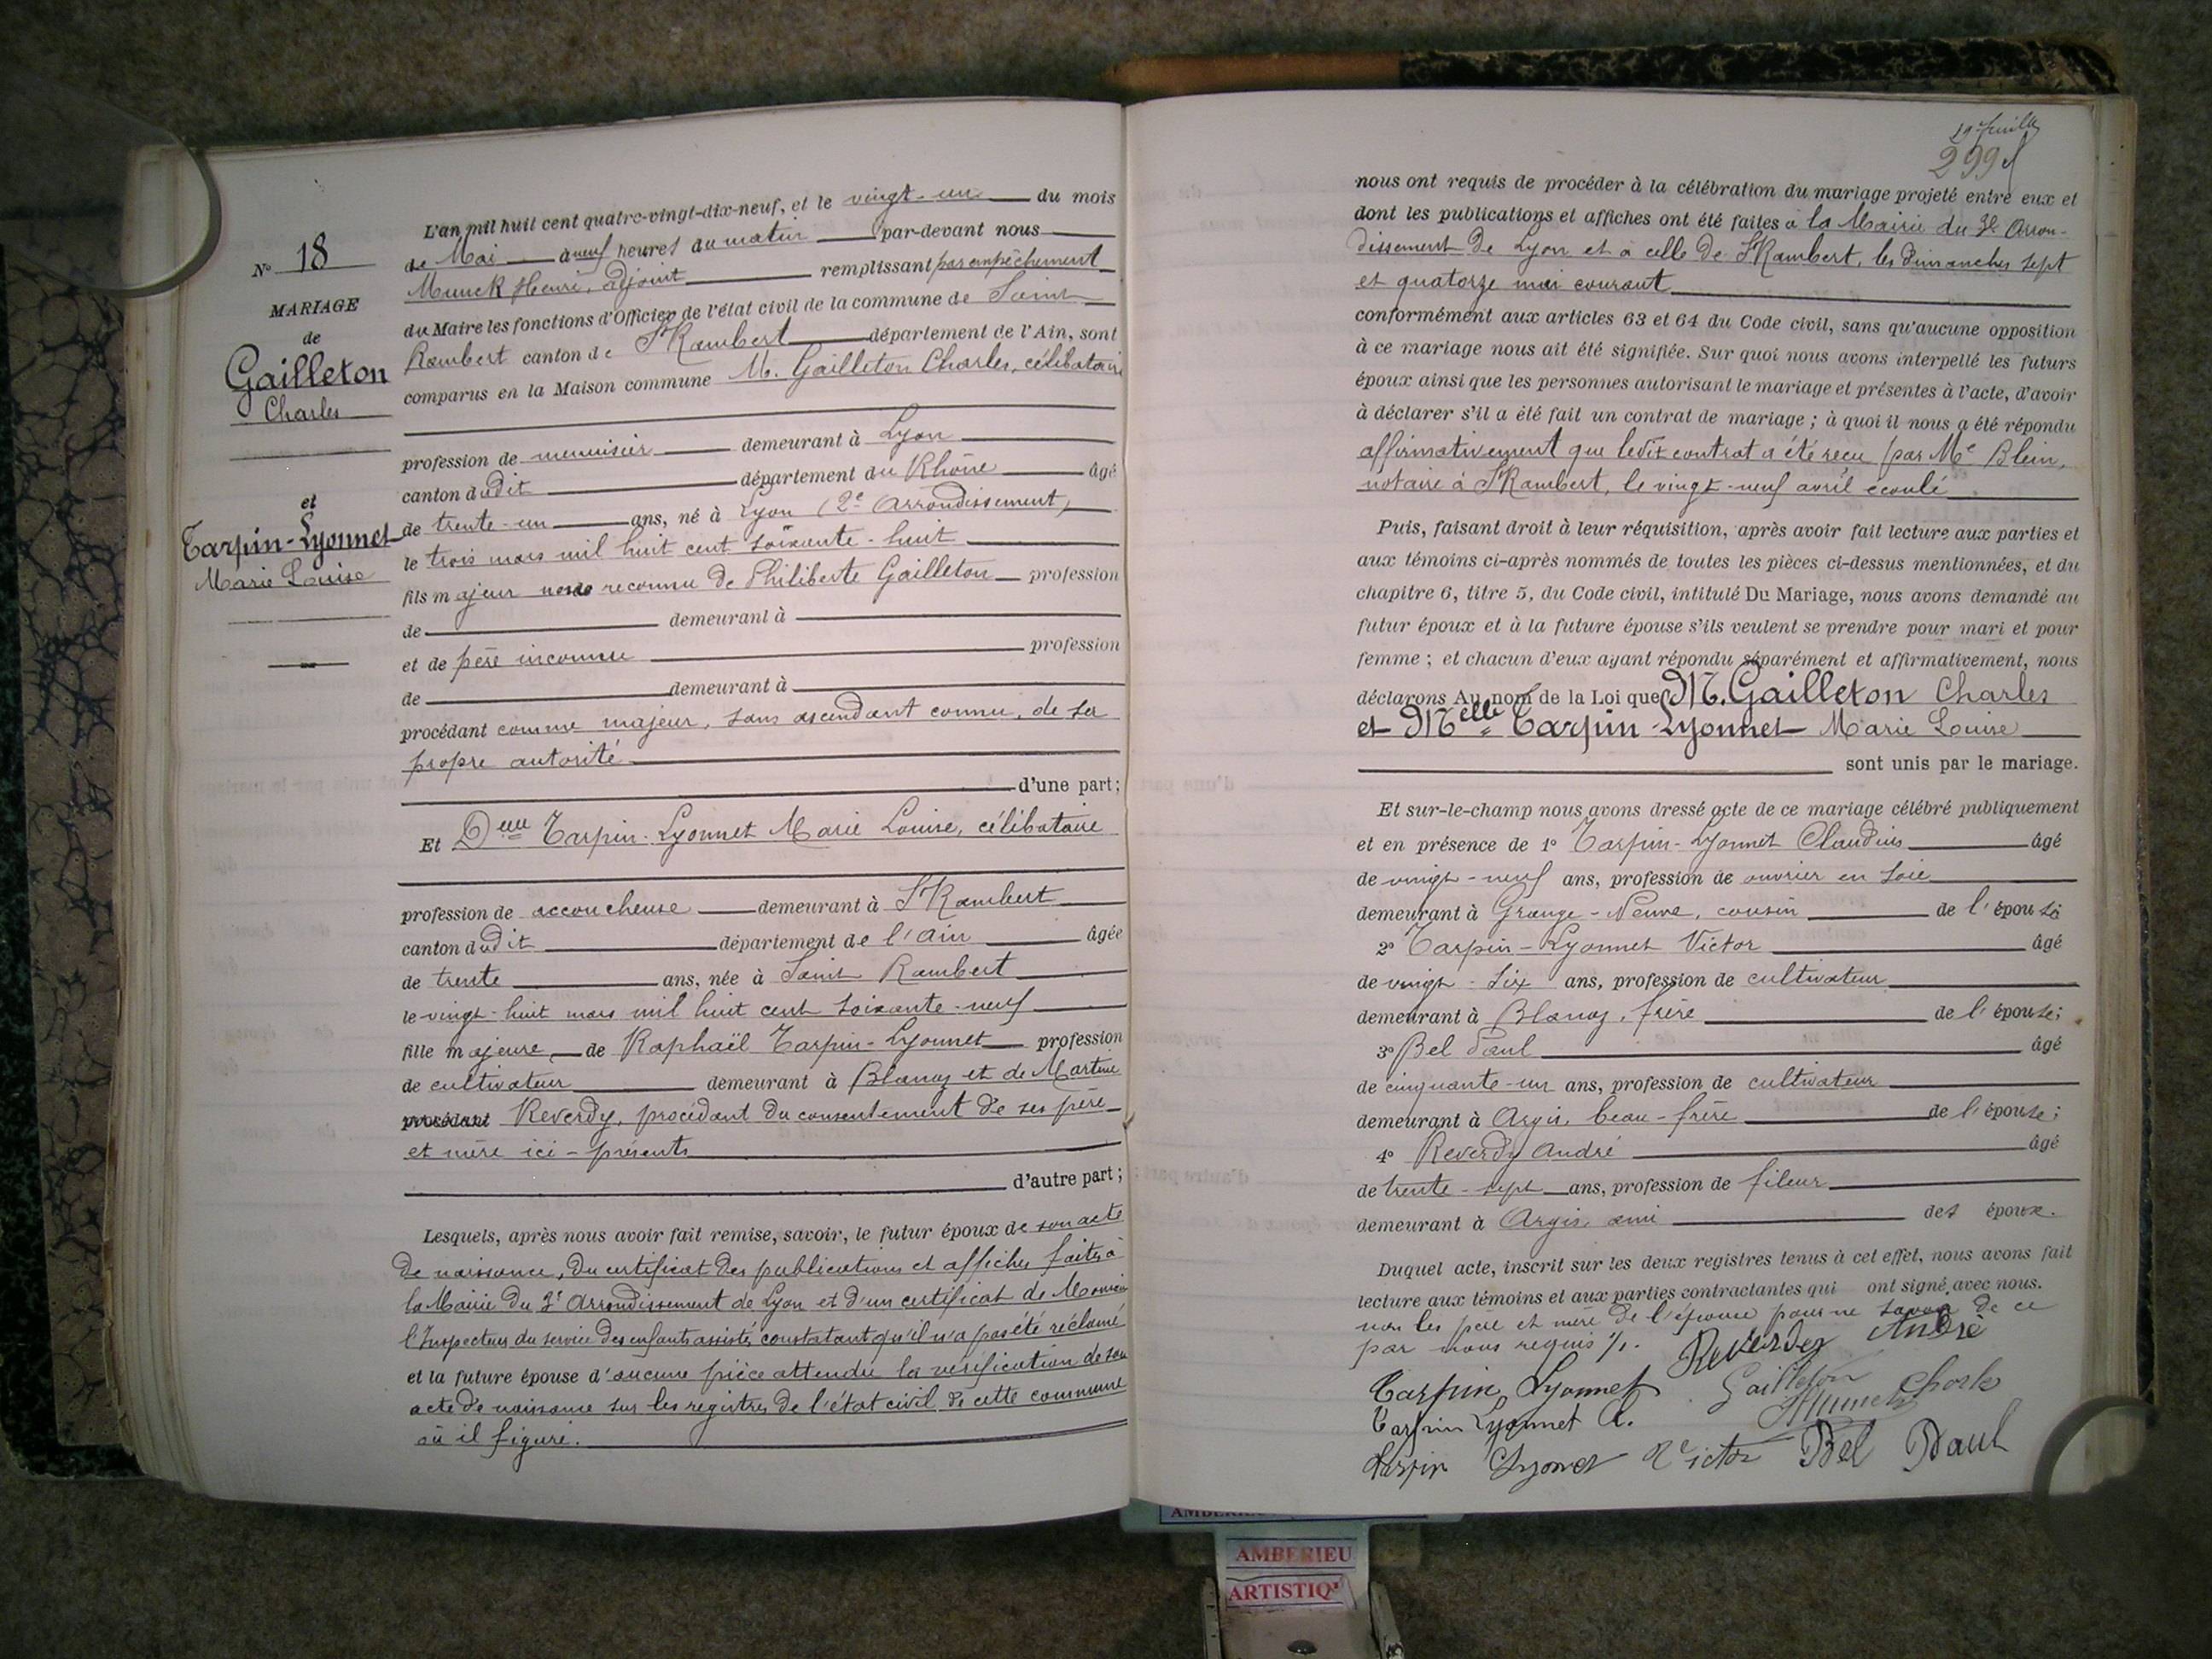 N° 18
MARIAGE
de
Gailleton
Charles
et
Tarpin-Lyonnet
Marie Louise
L'an mil huit cent quatre-vingt-dix-neuf, et le vingt-un du mois
de Mai à neuf heures du matin par-devant nous
Munck Henri, adjoint remplissant par empêchement
du Maire les fonctions d'Officier de l'état civil de la commune de Saint
Rambert canton de St Rambert département de l'Ain, sont
comparus en la Maison commune M. Gailleton Charles, célibataire
profession de menuisier demeurant à Lyon
canton dudit département du Rhône âgé
de trente-un ans, né à Lyon (2e Arrondissement)
le trois mars mil huit cent soixante-huit
fils majeur reconnu de Philiberte Gailleton profession
de demeurant à
et de père inconnu profession
de demeurant à
procédant comme majeur, sans ascendant connu, de sa
propre autorité
d'une part;
Et Delle Tarpin-Lyonnet Marie Louise, célibataire
profession de accoucheuse demeurant à St Rambert
canton dudit département de l'Ain âgée
de trente ans, née à Saint Rambert
le vingt-huit mars mil huit cent soixante-neuf
fille majeure de Raphaël Tarpin-Lyonnet profession
de cultivateur demeurant à Blanaz et de Martine
procédant Reverdy, procédant du consentement de ses père
et mère ici-présents
d'autre part;
Lesquels, après nous avoir fait remise, savoir, le futur époux de son acte
de naissance, du certificat des publications et affiches faites à
la Mairie du 3e Arrondissement de Lyon et d'un certificat de Monsieur
l'Inspecteur du service des enfants assistés constatant qu'il n'a pas été réclamé
et la future épouse d'aucune pièce attendu la vérification de son
acte de naissance sur les registres de l'état civil de cette commune
où il figure.
19e feuille
299
nous ont requis de procéder à la célébration du mariage projeté entre eux et
dont les publications et affiches ont été faites à la Mairie du 3e Arron-
dissement de Lyon et à celle de St Rambert, les dimanches sept
et quatorze mai courant
conformément aux articles 63 et 64 du Code civil, sans qu'aucune opposition
à ce mariage nous ait été signifiée. Sur quoi nous avons interpellé les futurs
époux ainsi que les personnes autorisant le mariage et présentes à l'acte, d'avoir
à déclarer s'il a été fait un contrat de mariage; à quoi il nous a été répondu
affirmativement que ledit contrat a été reçu par Me Blein,
notaire à St Rambert, le vingt-neuf avril écoulé
Puis, faisant droit à leur réquisition, après avoir fait lecture aux parties et
aux témoins ci-après nommés de toutes les pièces ci-dessus mentionnées, et du
chapitre 6, titre 5, du Code civil, intitulé Du Mariage, nous avons demandé au
futur époux et à la future épouse s'ils veulent se prendre pour mari et pour
femme; et chacun d'eux ayant répondu séparément et affirmativement, nous
déclarons Au nom de la Loi que M. Gailleton Charles
et Melle Tarpin-Lyonnet Marie Louise
sont unis par le mariage.
Et sur-le-champ nous avons dressé acte de ce mariage célébré publiquement
et en présence de 1° Tarpin-Lyonnet Claudius âgé
de vingt-neuf ans, profession de ouvrier en soie
demeurant à Grange-Neuve, cousin de l'épouse
2° Tarpin-Lyonnet Victor âgé
de vingt-six ans, profession de cultivateur
demeurant à Blanaz, frère de l'épouse;
3° Bel Paul âgé
de cinquante-un ans, profession de cultivateur
demeurant à Argis, beau-frère de l'épouse;
4° Reverdy André âgé
de trente-sept ans, profession de fileur
demeurant à Argis, ami des époux.
Duquel acte, inscrit sur les deux registres tenus à cet effet, nous avons fait
lecture aux témoins et aux parties contractantes qui ont signé avec nous.
non les père et mère de l'épouse pour ne savoir de ce
par nous requis ./.
Reverdy André
Tarpin Lyonnet Gailleton Charles
Tarpin Lyonnet C. HMunck
Tarpin Lyonet Victor Bel Paul
AMBERIEU
ARTISTIQ